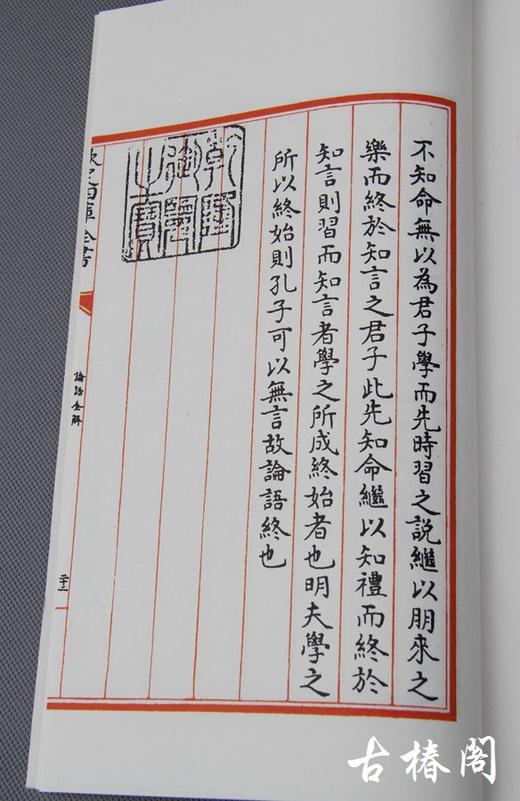 不知命無以為君子學而先時習之說繼以朋來之
樂而終於知言之君子此先知命繼以知禮而終於
知言則習而知言者學之所成終始者也明夫學之
所以終始則孔子可以無言故論語終也
乾隆
御覽
之寶
四庫全書
論語全解
二十二
古椿閣